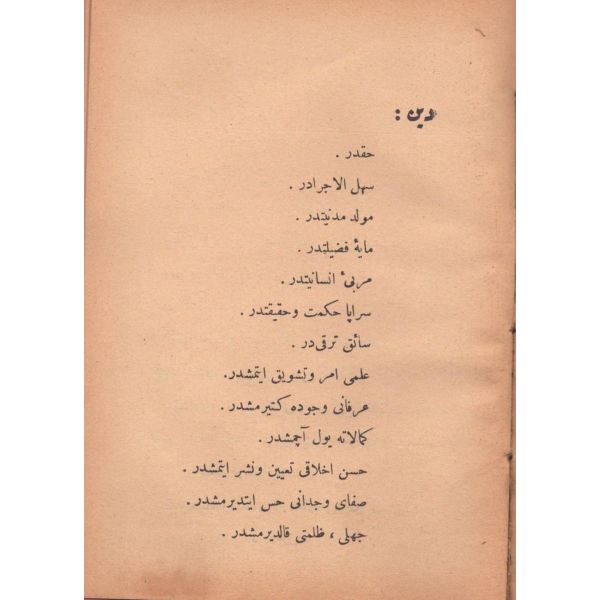 دین :
حقدر .
سهل الاجرادر .
مولد مدنیتدر .
مایهٔ فضیلتدر .
مربیٔ انسانیتدر .
سراپا حکمت وحقیقتدر .
سائق ترقی‌در .
علمی امر وتشویق ایتمشدر.
عرفانی وجوده کتیرمشدر.
کمالاته یول آچمشدر .
حسن اخلاقی تعیین ونشر ایتمشدر.
صفای وجدانی حس ایتدیرمشدر .
جهلی ، ظلمتی قالدیرمشدر .